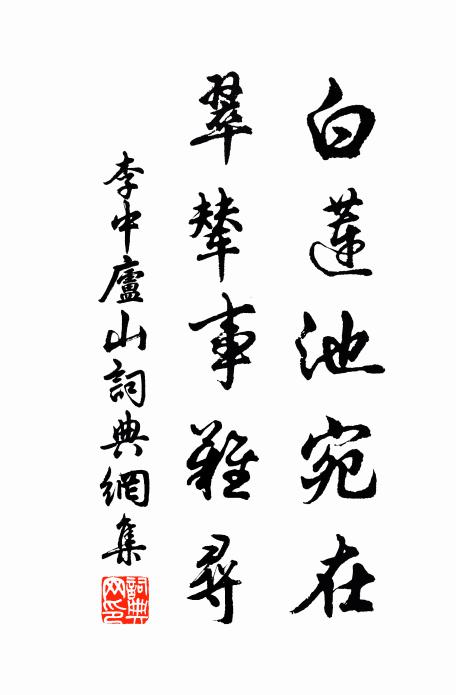 白蓮池宛在
翠輦事難尋
李中廬山詞典網集
詞典網印